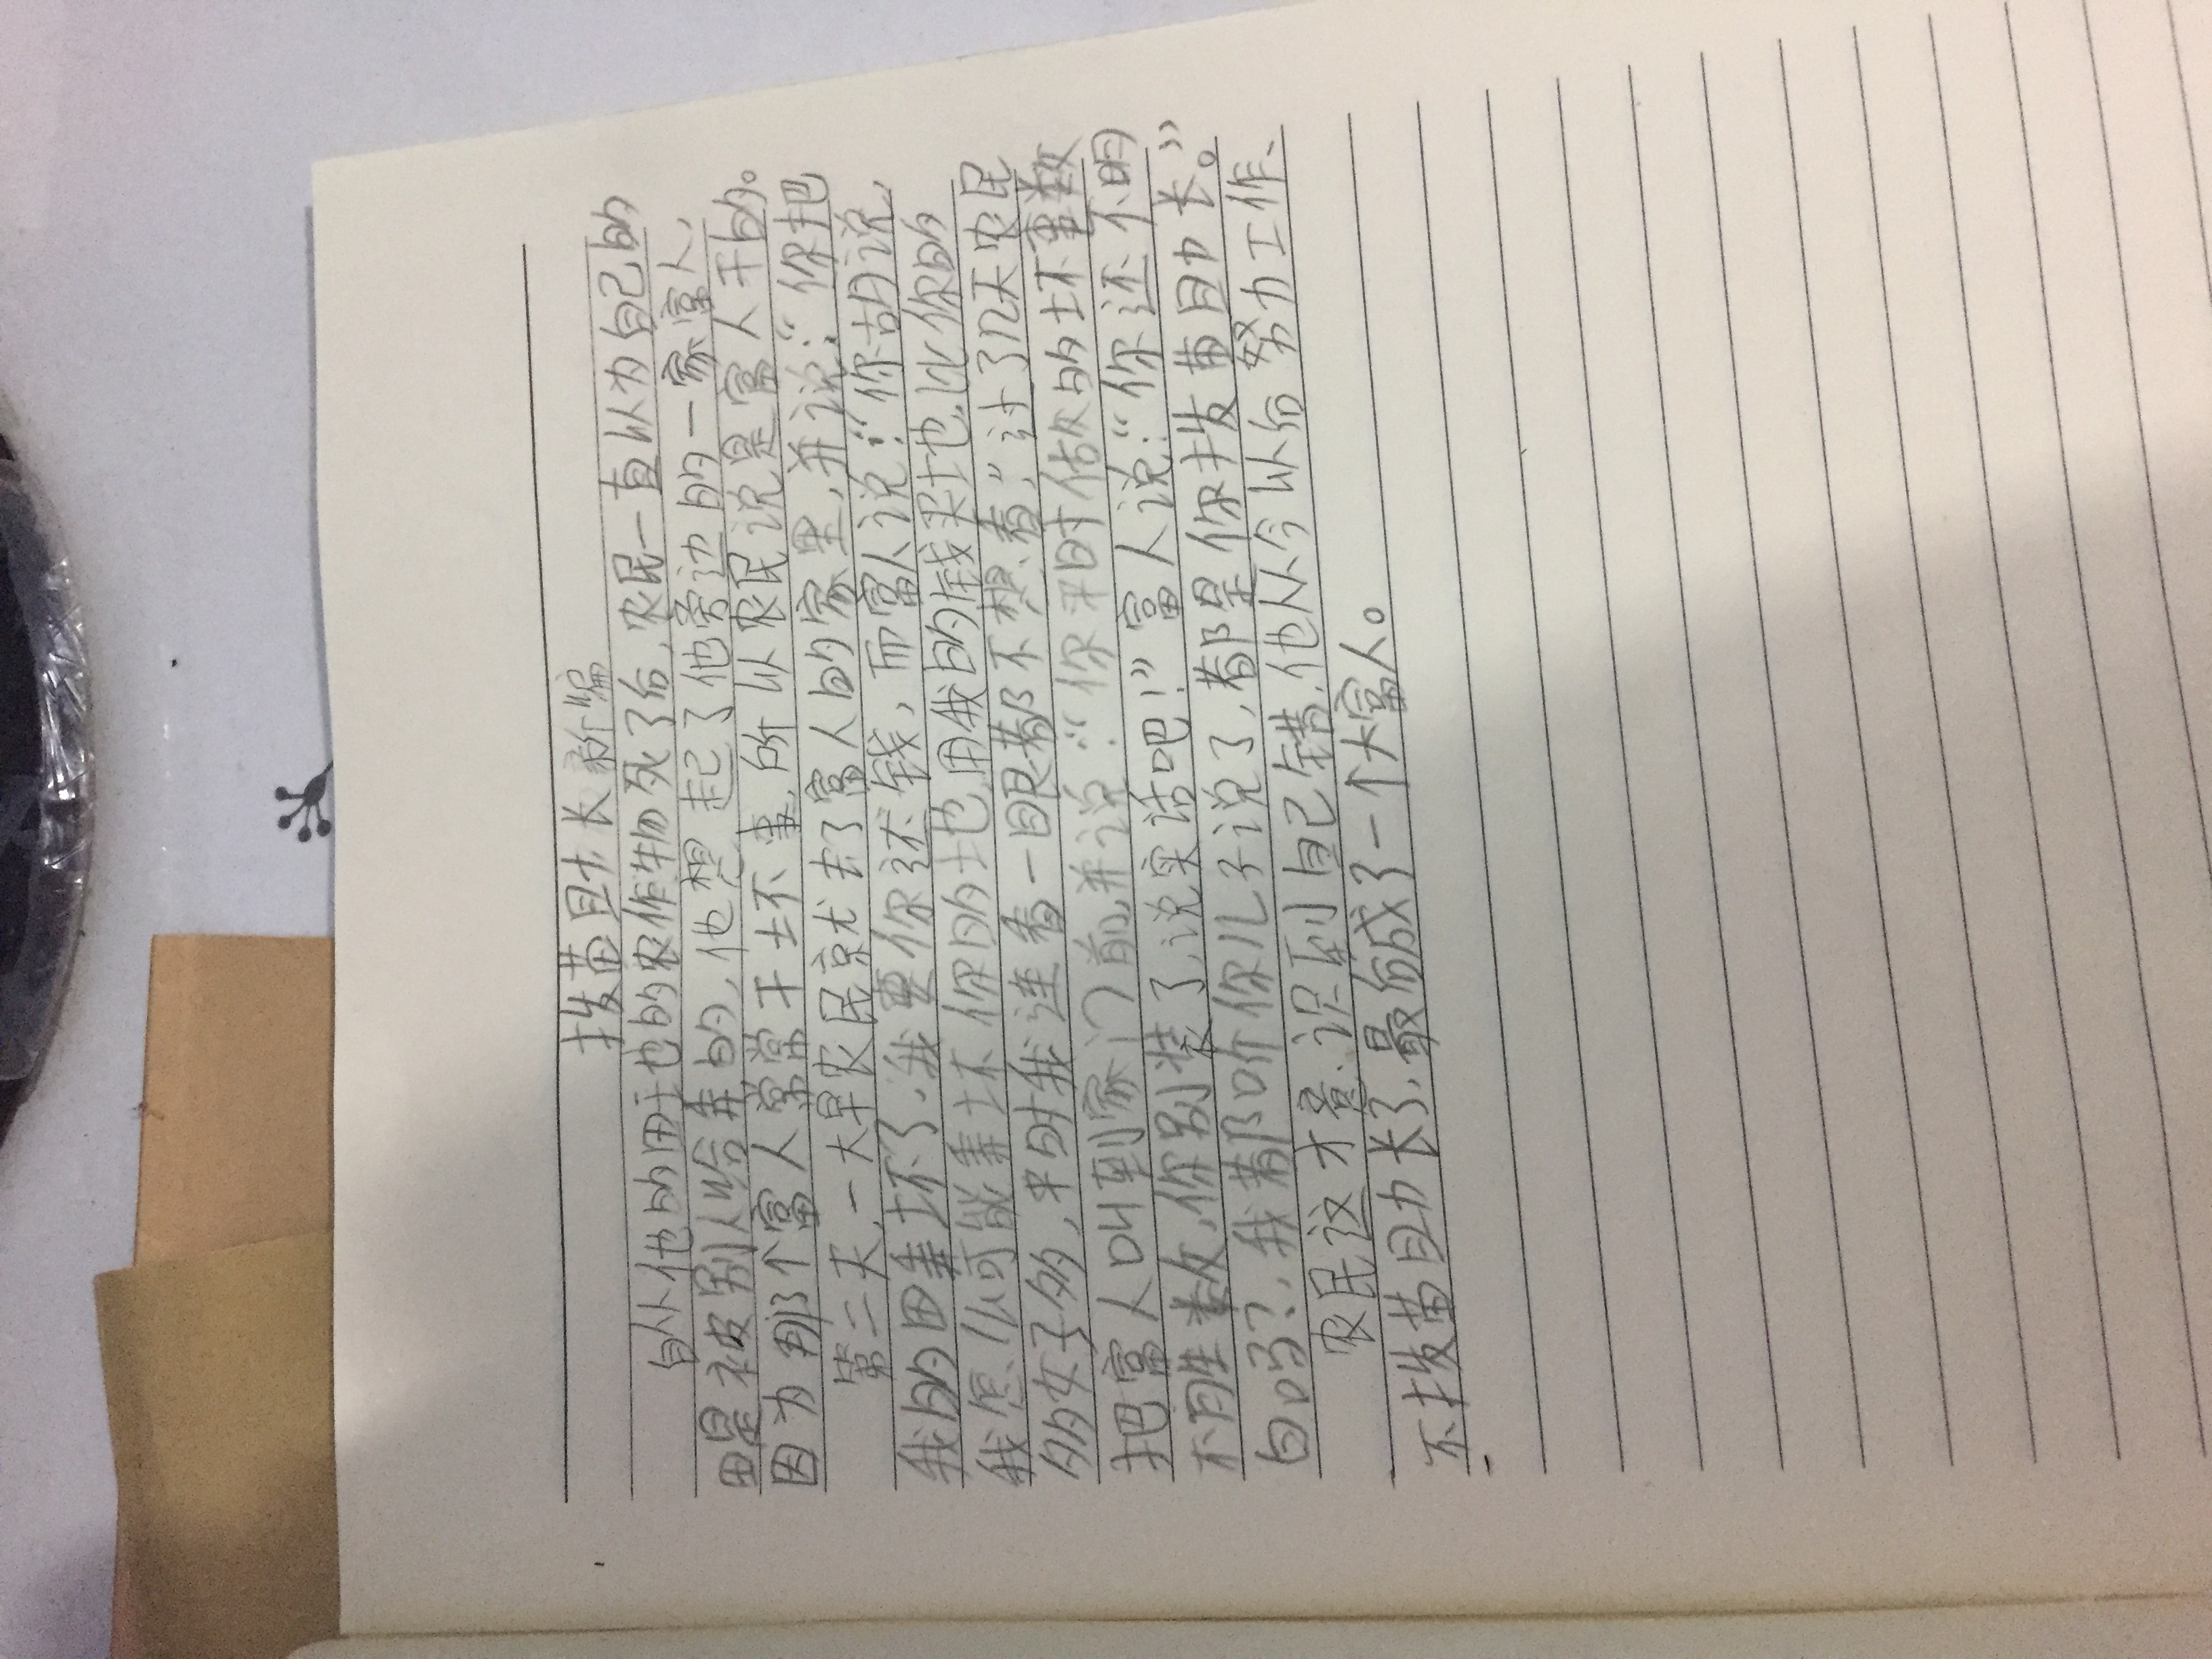 拔苗助长新编
自从他的田地的农作物死了后,农民一直以为自己的
田是被别人给弄的,他想起了他旁边的一家富人,
因为那个富人常常干坏事,所以农民说是富人干的。
第二天,一大早农民就去了富人的家里,并说:“你把
我的田弄坏了,我要你还钱,而富人说:“你胡说
我怎么可能弄坏你的地,用我的钱买地,比你的
多的女子多,平时我连看一眼都不想看,”过了几天农民
把富人叫到家门前,并说:“你平时做的坏事数
不胜数,你别装了,说实话吧!”富人说:“你还不明
白吗?,我都听你儿子说了,都是你拔苗助长。”
农民这才意识到自己错,他从今以后努力工作、
不拔苗助长了,最后成了一个大富人。